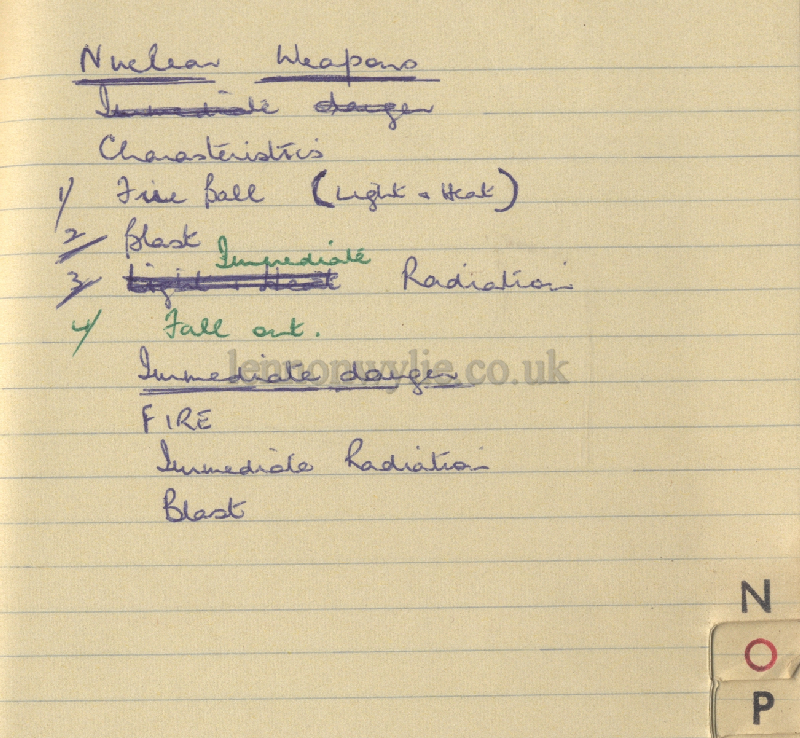 Nuclear Weapons
Immediate danger
Characteristics
1/ Fire Ball (Light + Heat)
2/ Blast
Immediate
3/ Light + Heat Radiation
4/ Fall out.
Immediate danger
lennonwylie.co.uk
FIRE
Immediate Radiation
Blast
N
O
P